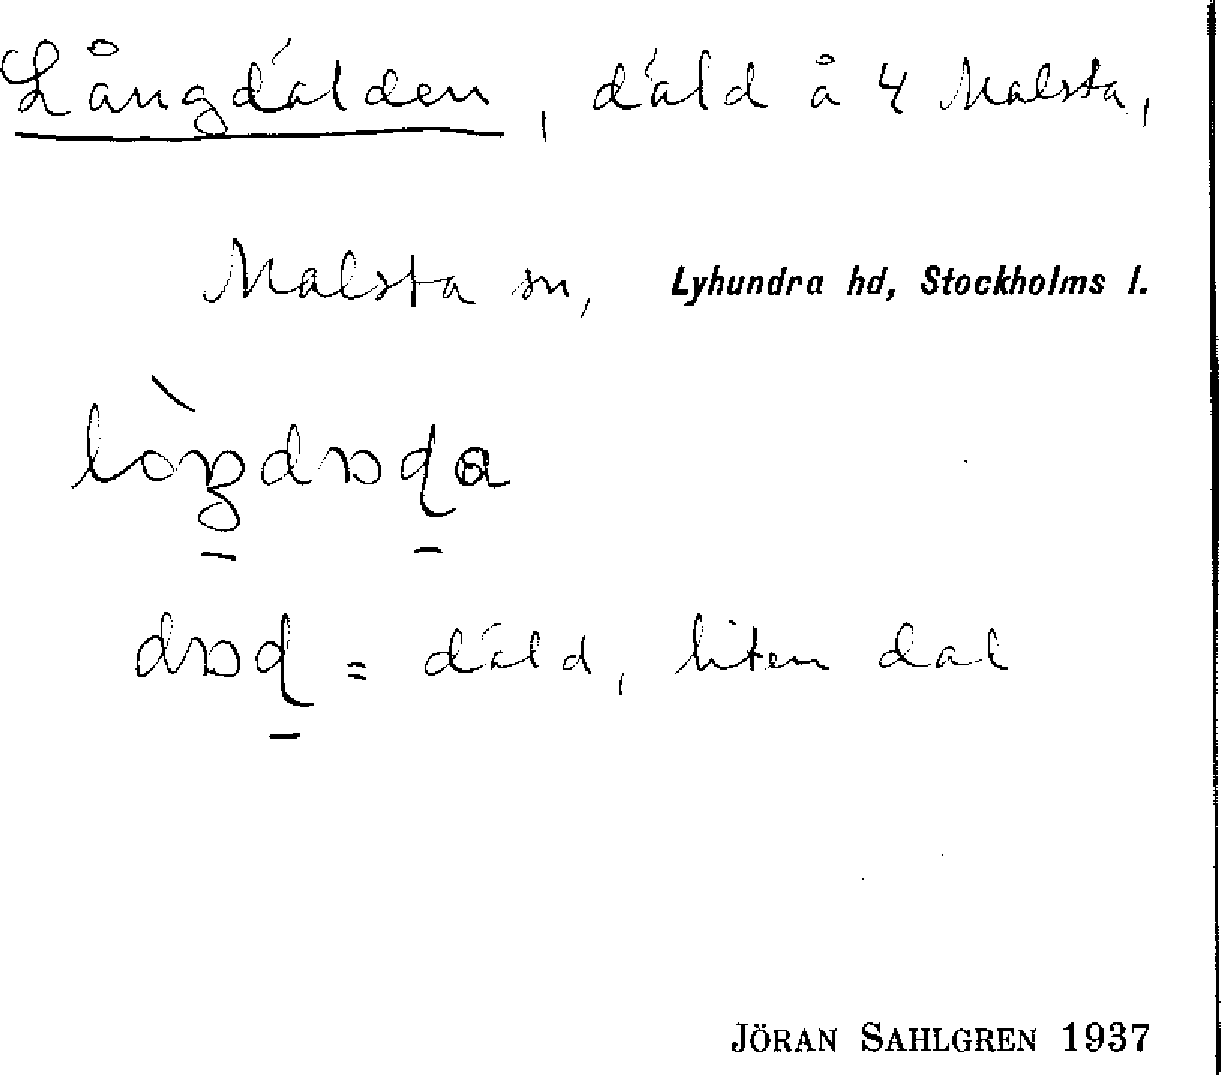 Långdälden, däld å 4 Malsta,
Malsta sn, Lyhundra hd, Stockholms l.
= däld, liten dal
JÖRAN SAHLGREN 1937